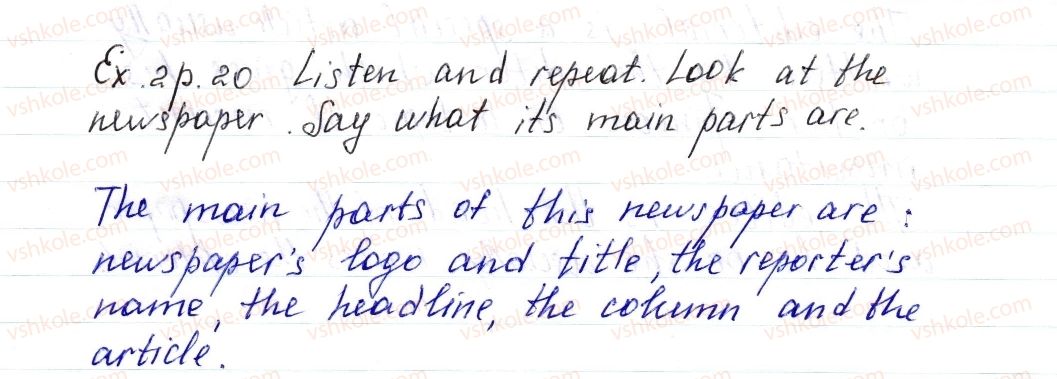 Ex.2p.20 Listen and repeat. Look at the
newspaper. Say what its main parts are.
The main parts of this newspaper are:
newspaper's logo and title, the reporter's
name, the headline, the column and the
article.